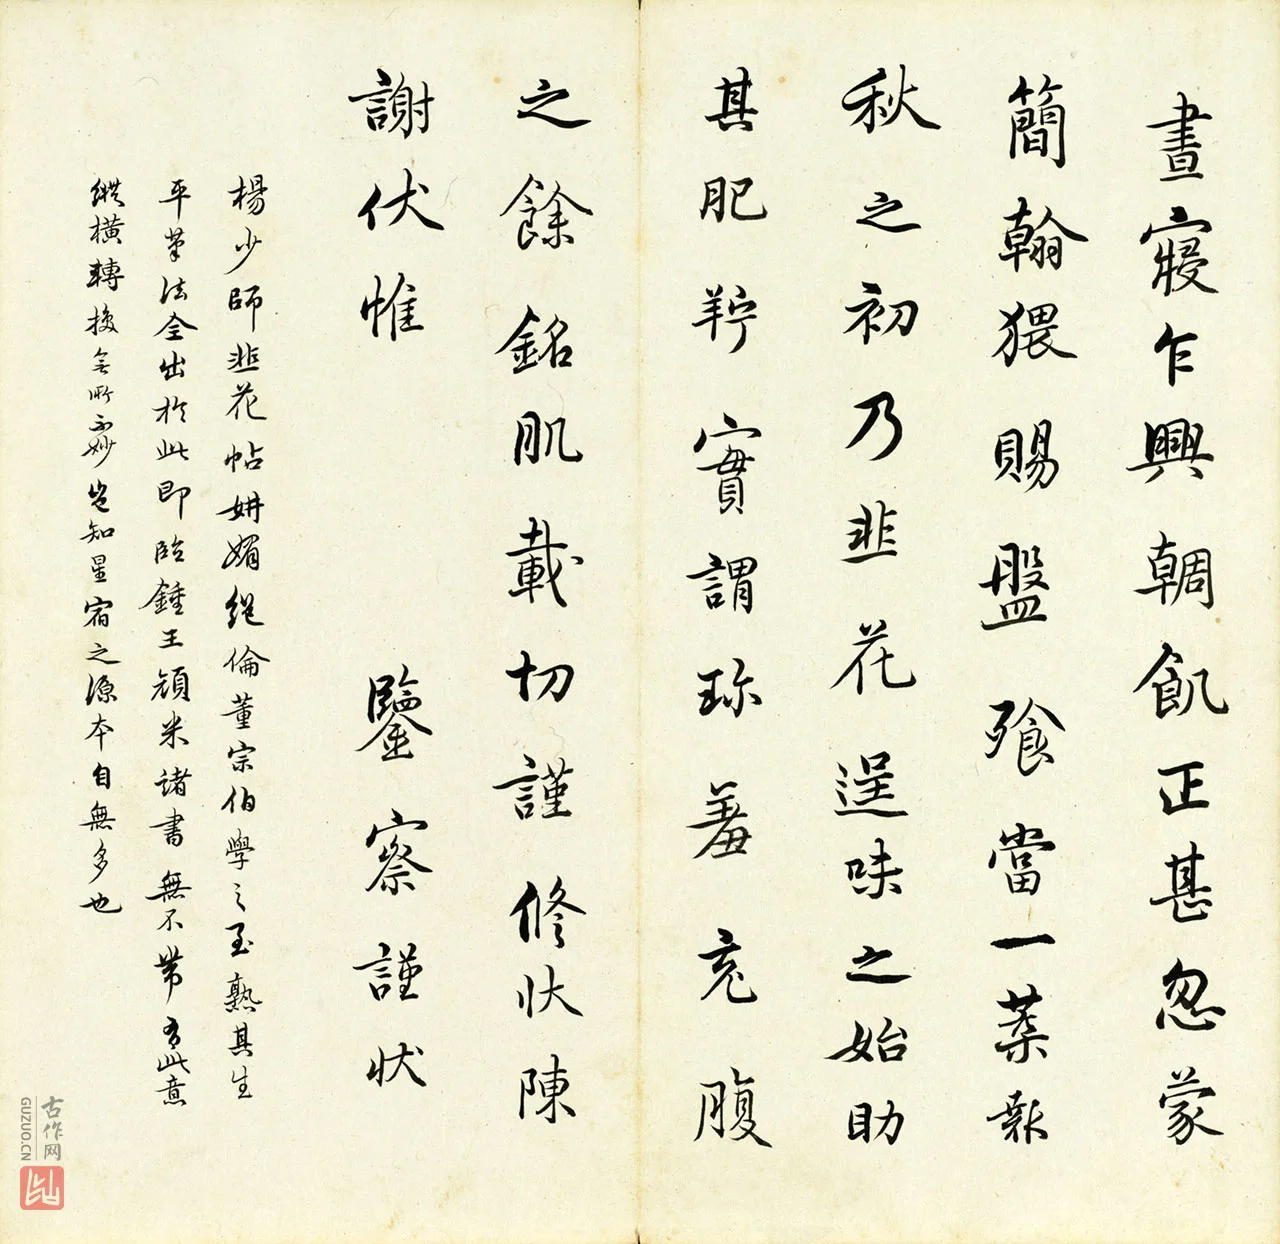 晝寢乍興朝飢正甚忽蒙
簡翰猥賜盤飧當一葉報
秋之初乃韭花逞味之始助
其肥羜實謂珎羞充腹
之餘銘肌載切謹修狀陳
謝伏惟 鑒察謹狀
楊少師韭花帖妍媚絕倫董宗伯學之至熟其生
平筆法全出於此即臨鍾王顏米諸書無不帶有此意
縱橫轉換無所不妙豈知星宿之源本自無多也
古作网
GUZUO.CN